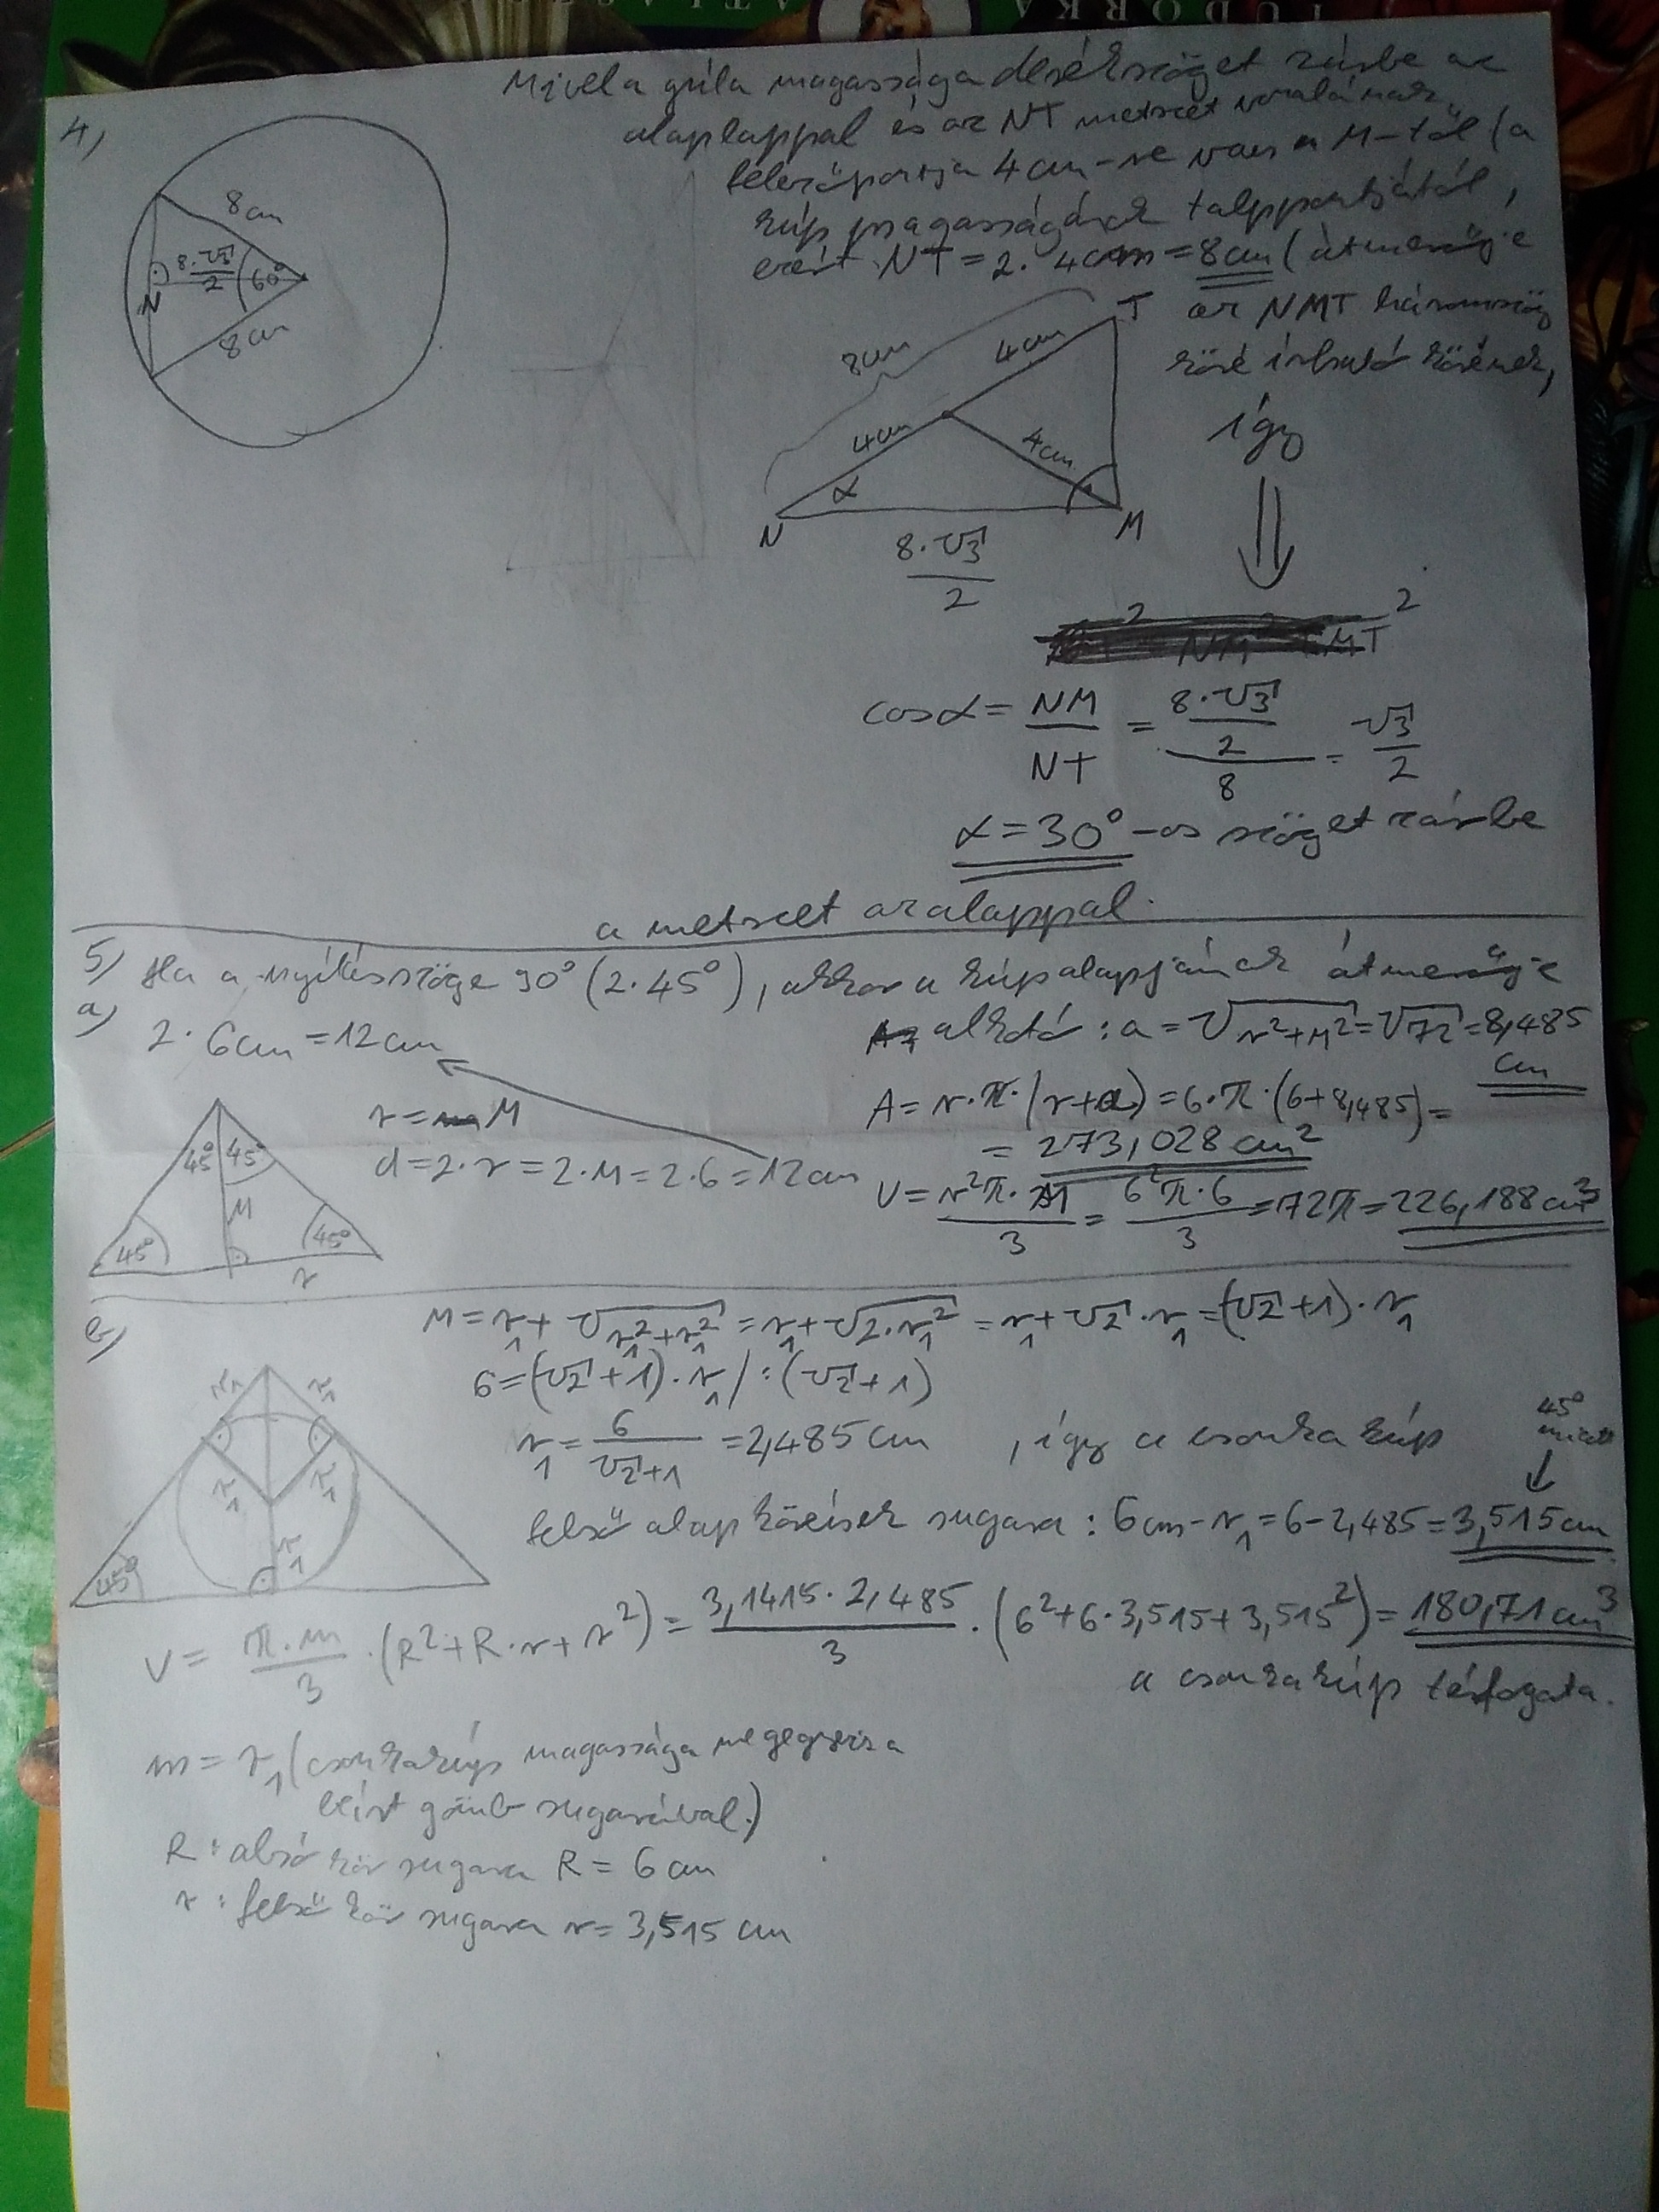 TUDORKA ATLASZ
Mivel a gúla magassága derékszöget zár be az
4)
alaplappal és az NT metszet vonalának
felezőpontja 4 cm-re van a M-től (a
kúp magasságának talppontjától,
ezért NT = 2 · 4cm = 8cm (átmerője
az NMT háromszög
köré írható körének,
8cm
8·√3/2
60°
N
8cm
T
8cm
4cm
4cm
4cm
α
N
M
8·√3/2
így
⇓
NM² + MT²
cosα = NM/NT = (8·√3/2)/8 = √3/2
α = 30°-os szöget zár be
a metszet az alappal.
5) Ha a nyílásszöge 90° (2·45°), akkor a kúp alapjának átmerője
a)
2 · 6cm = 12cm
alkotó : a = √(r²+M²) = √72 = 8,485
cm
r = M
A = r·π·(r+a) = 6·π·(6+8,485) =
= 273,028 cm²
d = 2·r = 2·M = 2·6 = 12cm
V = r²π·M/3 = 6²π·6/3 = 72π = 226,188 cm³
45° 45°
M
45° 45°
r
b)
M = r₁ + √(r₁²+r₁²) = r₁ + √(2·r₁²) = r₁ + √2·r₁ = (√2+1)·r₁
6 = (√2+1)·r₁ /:(√2+1)
r₁ = 6/(√2+1) = 2,485 cm , így a csonka kúp
45°
miatt
↓
felső alapkörének sugara : 6cm - r₁ = 6 - 2,485 = 3,515cm
r₁ r₁
r₁ r₁
r₁
45°
V = π·m/3 · (R²+R·r+r²) = 3,1415·2,485/3 · (6²+6·3,515+3,515²) = 180,71cm³
a csonkakúp térfogata.
m = r₁ (csonkakúp magassága megegyezik a
beírt gömb sugarával.)
R : alsó kör sugara R = 6 cm
r : felső kör sugara r = 3,515 cm